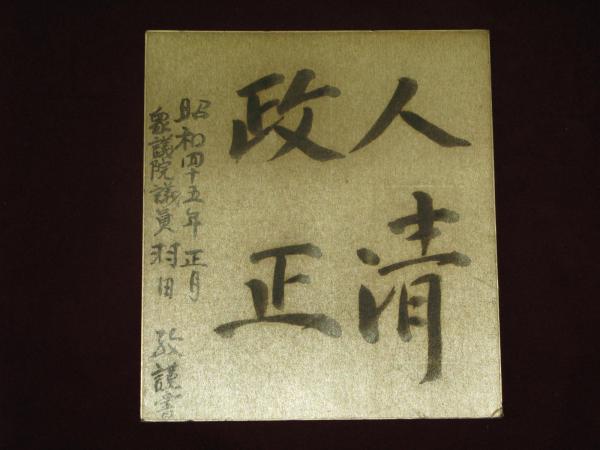 人清
政正
昭和四十五年 正月
衆議院議員 羽田 孜 謹書